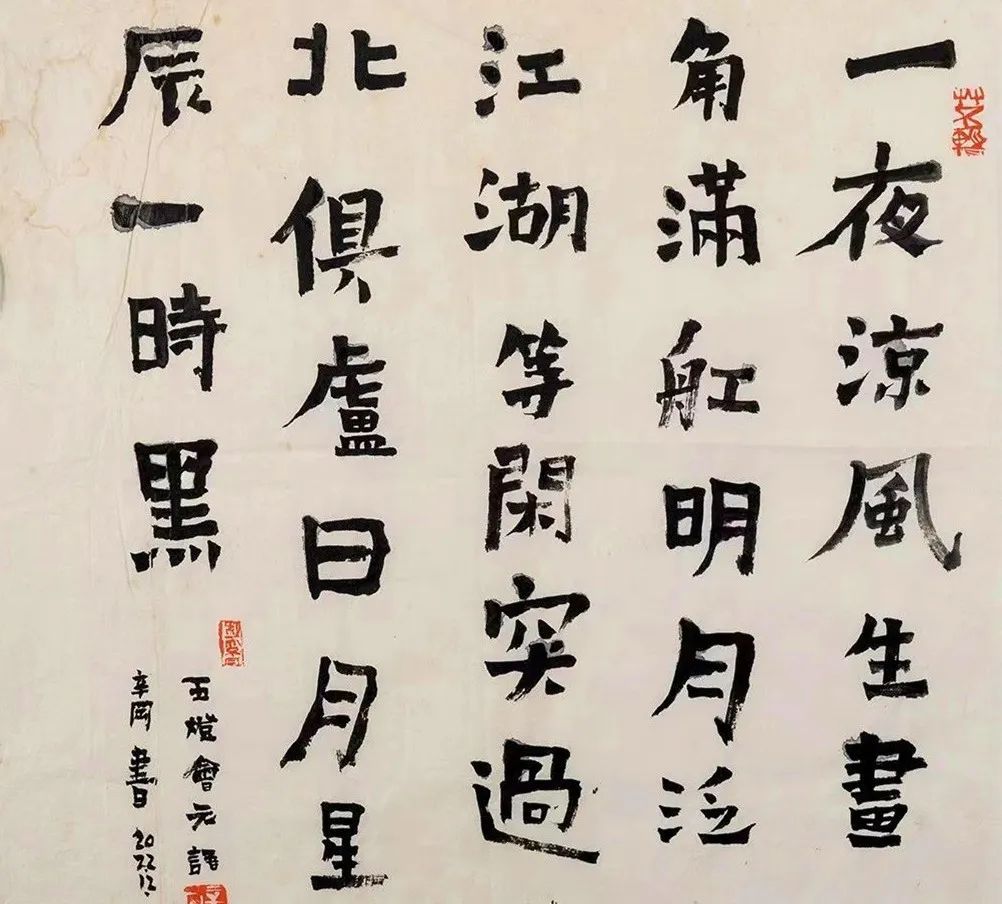 一夜涼風生畫
角滿舡明月泛
江湖等閑突過
北俱盧日月星
辰一時黑
五燈會元語
書 2022.12.